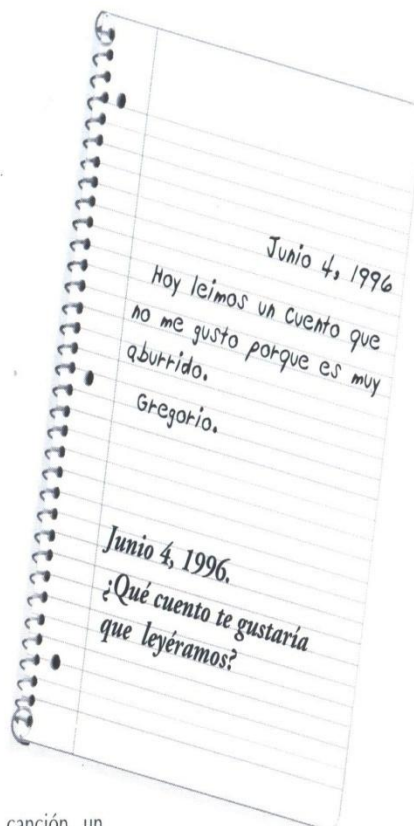 Junio 4, 1996
Hoy leimos un cuento que
no me gusto porque es muy
aburrido.
Gregorio.
Junio 4, 1996.
¿Qué cuento te gustaría
que leyéramos?
canción, un